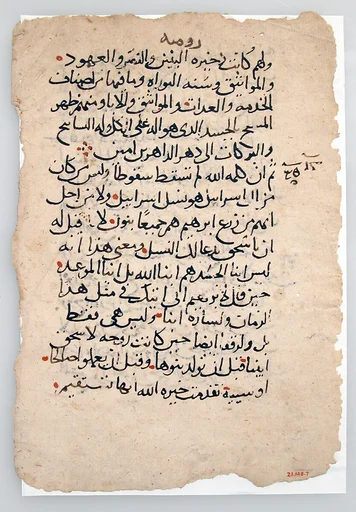 رومية
ولهم كانت ذخيرة البنين والنعمة والعهود
والمواثيق وسنه التوراه وما فيها من اصناف
الخدمه والعدات والمواثيق والابا ومنهم ظهر
المسيح الجسد الذى هو اله على الكل وله التسابيح
والبركات الى دهر الداهرين امين
ثم ان كلمه الله لم تسقط سقوطا وليس من كان
من ال اسراييل هو نسل اسراييل ولا من اجل
انهم من زرع ابرهيم هم جميعا بنون لانه قيل له
ان باسحق يدعا لك النسل ومعنى هذا انه
ليس ابنا الجسد هم ابنا الله بل ابنا الموعد
حين قال انى ارجع الى اتيك فى مثل هذا
الزمان ولساره ابنا وليس هى فقط
بل ورفقه ايضا حين كانت زوجه لاسحق
ابينا قبل ان يولد بنوها وقبل ان يعملوا صالحا
او سييه تقدمت خيره الله انها تستقيم